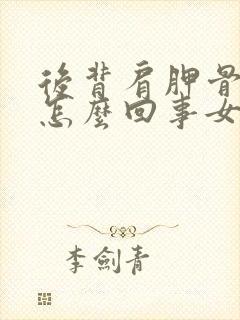 後背肩胛骨
怎麼回事女
李劍青